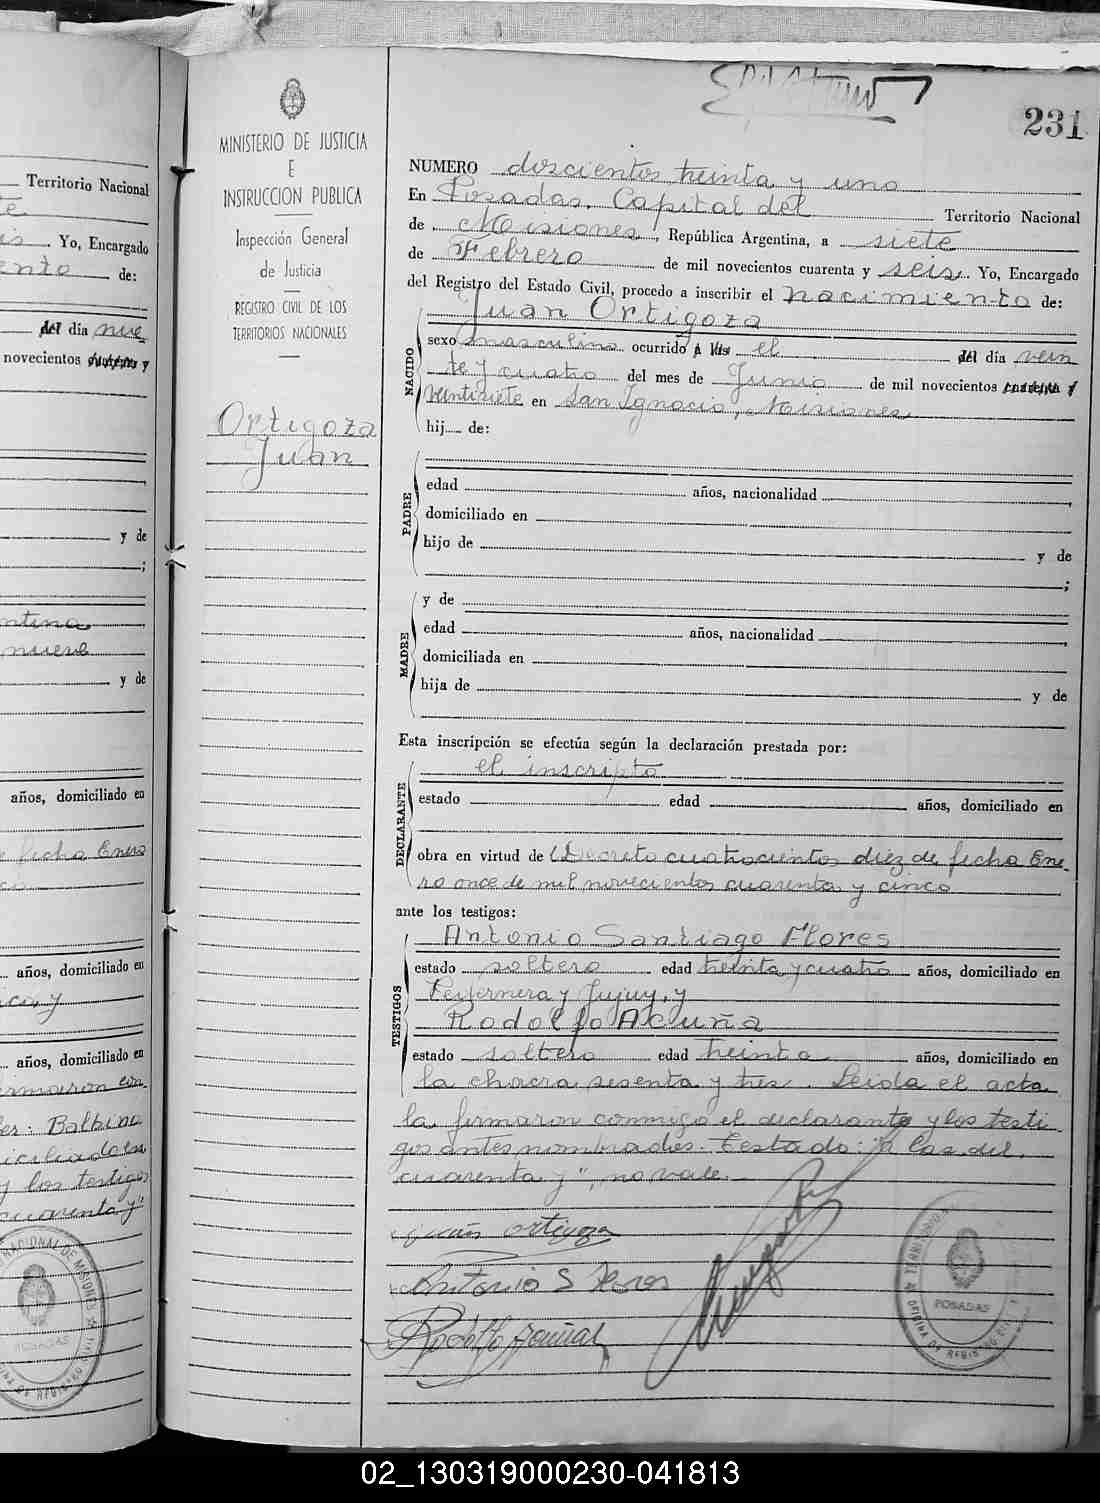 231
MINISTERIO DE JUSTICIA
E
INSTRUCCION PUBLICA
Inspección General
de Justicia
REGISTRO CIVIL DE LOS
TERRITORIOS NACIONALES
Ortigoza
Juan
NUMERO doscientos treinta y uno
En Posadas, Capital del Territorio Nacional
de Misiones, República Argentina, a siete
de Febrero de mil novecientos cuarenta y seis. Yo, Encargado
del Registro del Estado Civil, procedo a inscribir el nacimiento de:
Juan Ortigoza
NACIDO
sexo masculino ocurrido a las el del día vein
te y cuatro del mes de Junio de mil novecientos cuarenta y
veintisiete en San Ignacio, Misiones
hij de:
PADRE
edad años, nacionalidad
domiciliado en
hijo de y de
;
MADRE
y de
edad años, nacionalidad
domiciliada en
hija de y de
Esta inscripción se efectúa según la declaración prestada por:
DECLARANTE
el inscripto
estado edad años, domiciliado en
obra en virtud de Decreto cuatrocientos diez de fecha Ene-
ro once de mil novecientos cuarenta y cinco
ante los testigos:
TESTIGOS
Antonio Santiago Flores
estado soltero edad treinta y cuatro años, domiciliado en
y Jujuy, y
Rodolfo Acuña
estado soltero edad treinta años, domiciliado en
la chacra sesenta y tres. Leida el acta
la firmaron conmigo el declarante y los testi
gos antes nombrados. Testado: "a las del,
cuarenta y", no vale.
Juan Ortigoza
Antonio S Flores
Rodolfo
POSADAS
OFICINA DE REGISTRO CIVIL
Territorio Nacional
Yo, Encargado
de:
del día nue
novecientos cuarenta y
y de
;
ntina
nueve
y de
años, domiciliado en
fecha Enero
años, domiciliado en
años, domiciliado en
rmaron con
Balbino
iciliado en
y los testigos
cuarenta y"
NACIONAL DE MISIONES
POSADAS
OFICINA DE REGISTRO CIVIL
02_130319000230-041813